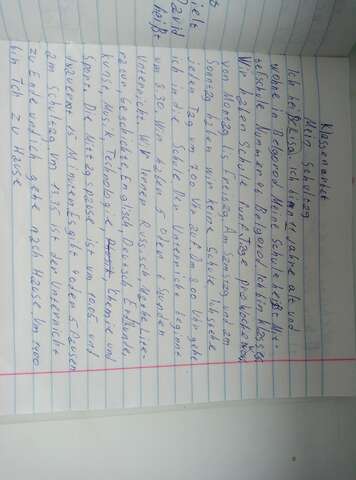 Klassenarbeit
Mein Schultag
Ich heiße Lisa. Ich bin 11 Jahre alt und
wohne in Belgorod. Meine Schule heißt Mit-
telschule Nummer 42 Belgorod. Ich bin Klasse 5
Wir haben Schule fünf Tage pro Woche
von Montag bis Freitag. Am Samstag und am
Sonntag haben wir keine Schule. Ich gehe
jeden Tag um 7.00 Uhr auf. Um 8.00 Uhr gehe
ich in die Schule. Der Unterricht beginnt
um 8.30. Wir haben 5 oder 6 Stunden
Unterricht. Wir lernen Russisch, Mathe, Lite-
ratur, Geschichte, Englisch, Deutsch, Erdkunde,
Kunst, Musik, Technologie, Chemie und
Sport. Die Mittagspause ist um 10.05 und
dauern 15 Minuten. Es gibt jeden 5 Pausen
am Schultag. Um 13.35 ist der Unterricht
zu Ende und ich gehe nach Hause. Um 14.00
bin ich zu Hause